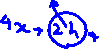 4x + 24